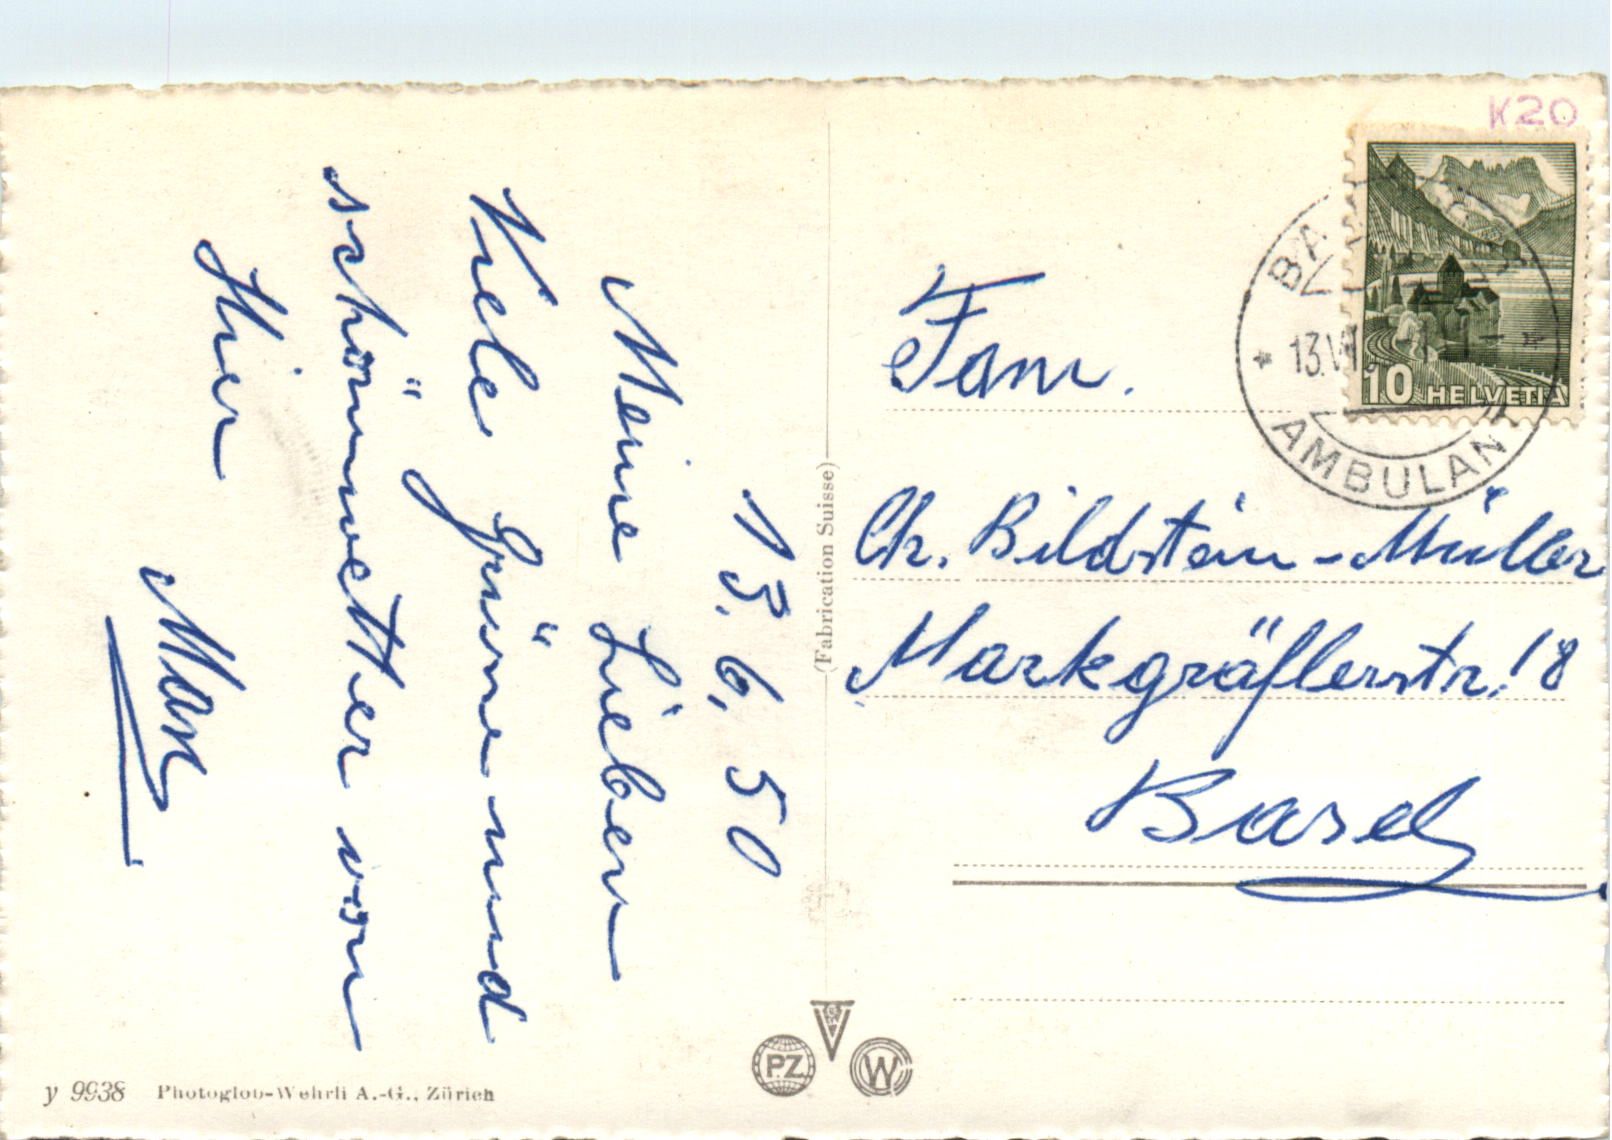 13. 6. 50
Meine Lieben
Viele Grüsse und
schönwetter von
Hier
Max
Fam.
Ch. Bildstein-Müller
Markgräflerstr. 18
Basel
K20
10 HELVETIA
BA
13.VI
AMBULAN
(Fabrication Suisse)
PZ
W
y 9938 Photoglob-Wehrli A.-G., Zürich